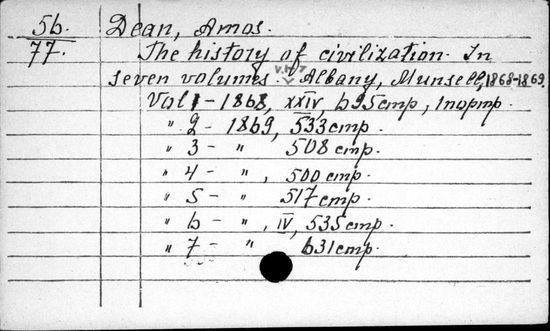 56. Dean, Amos.
77. The history of civilization. In
seven volumes. V.1-7 Albany, Munsell, 1868-1869.
Vol 1 - 1868, XXIV, 695 стр., 1 портр.
" 2 - 1869, 533 стр.
" 3 - " 508 стр.
" 4 - ", 500 стр.
" 5 - " 517 стр.
" 6 - ", IV, 535 стр.
" 7 - " 631 стр.